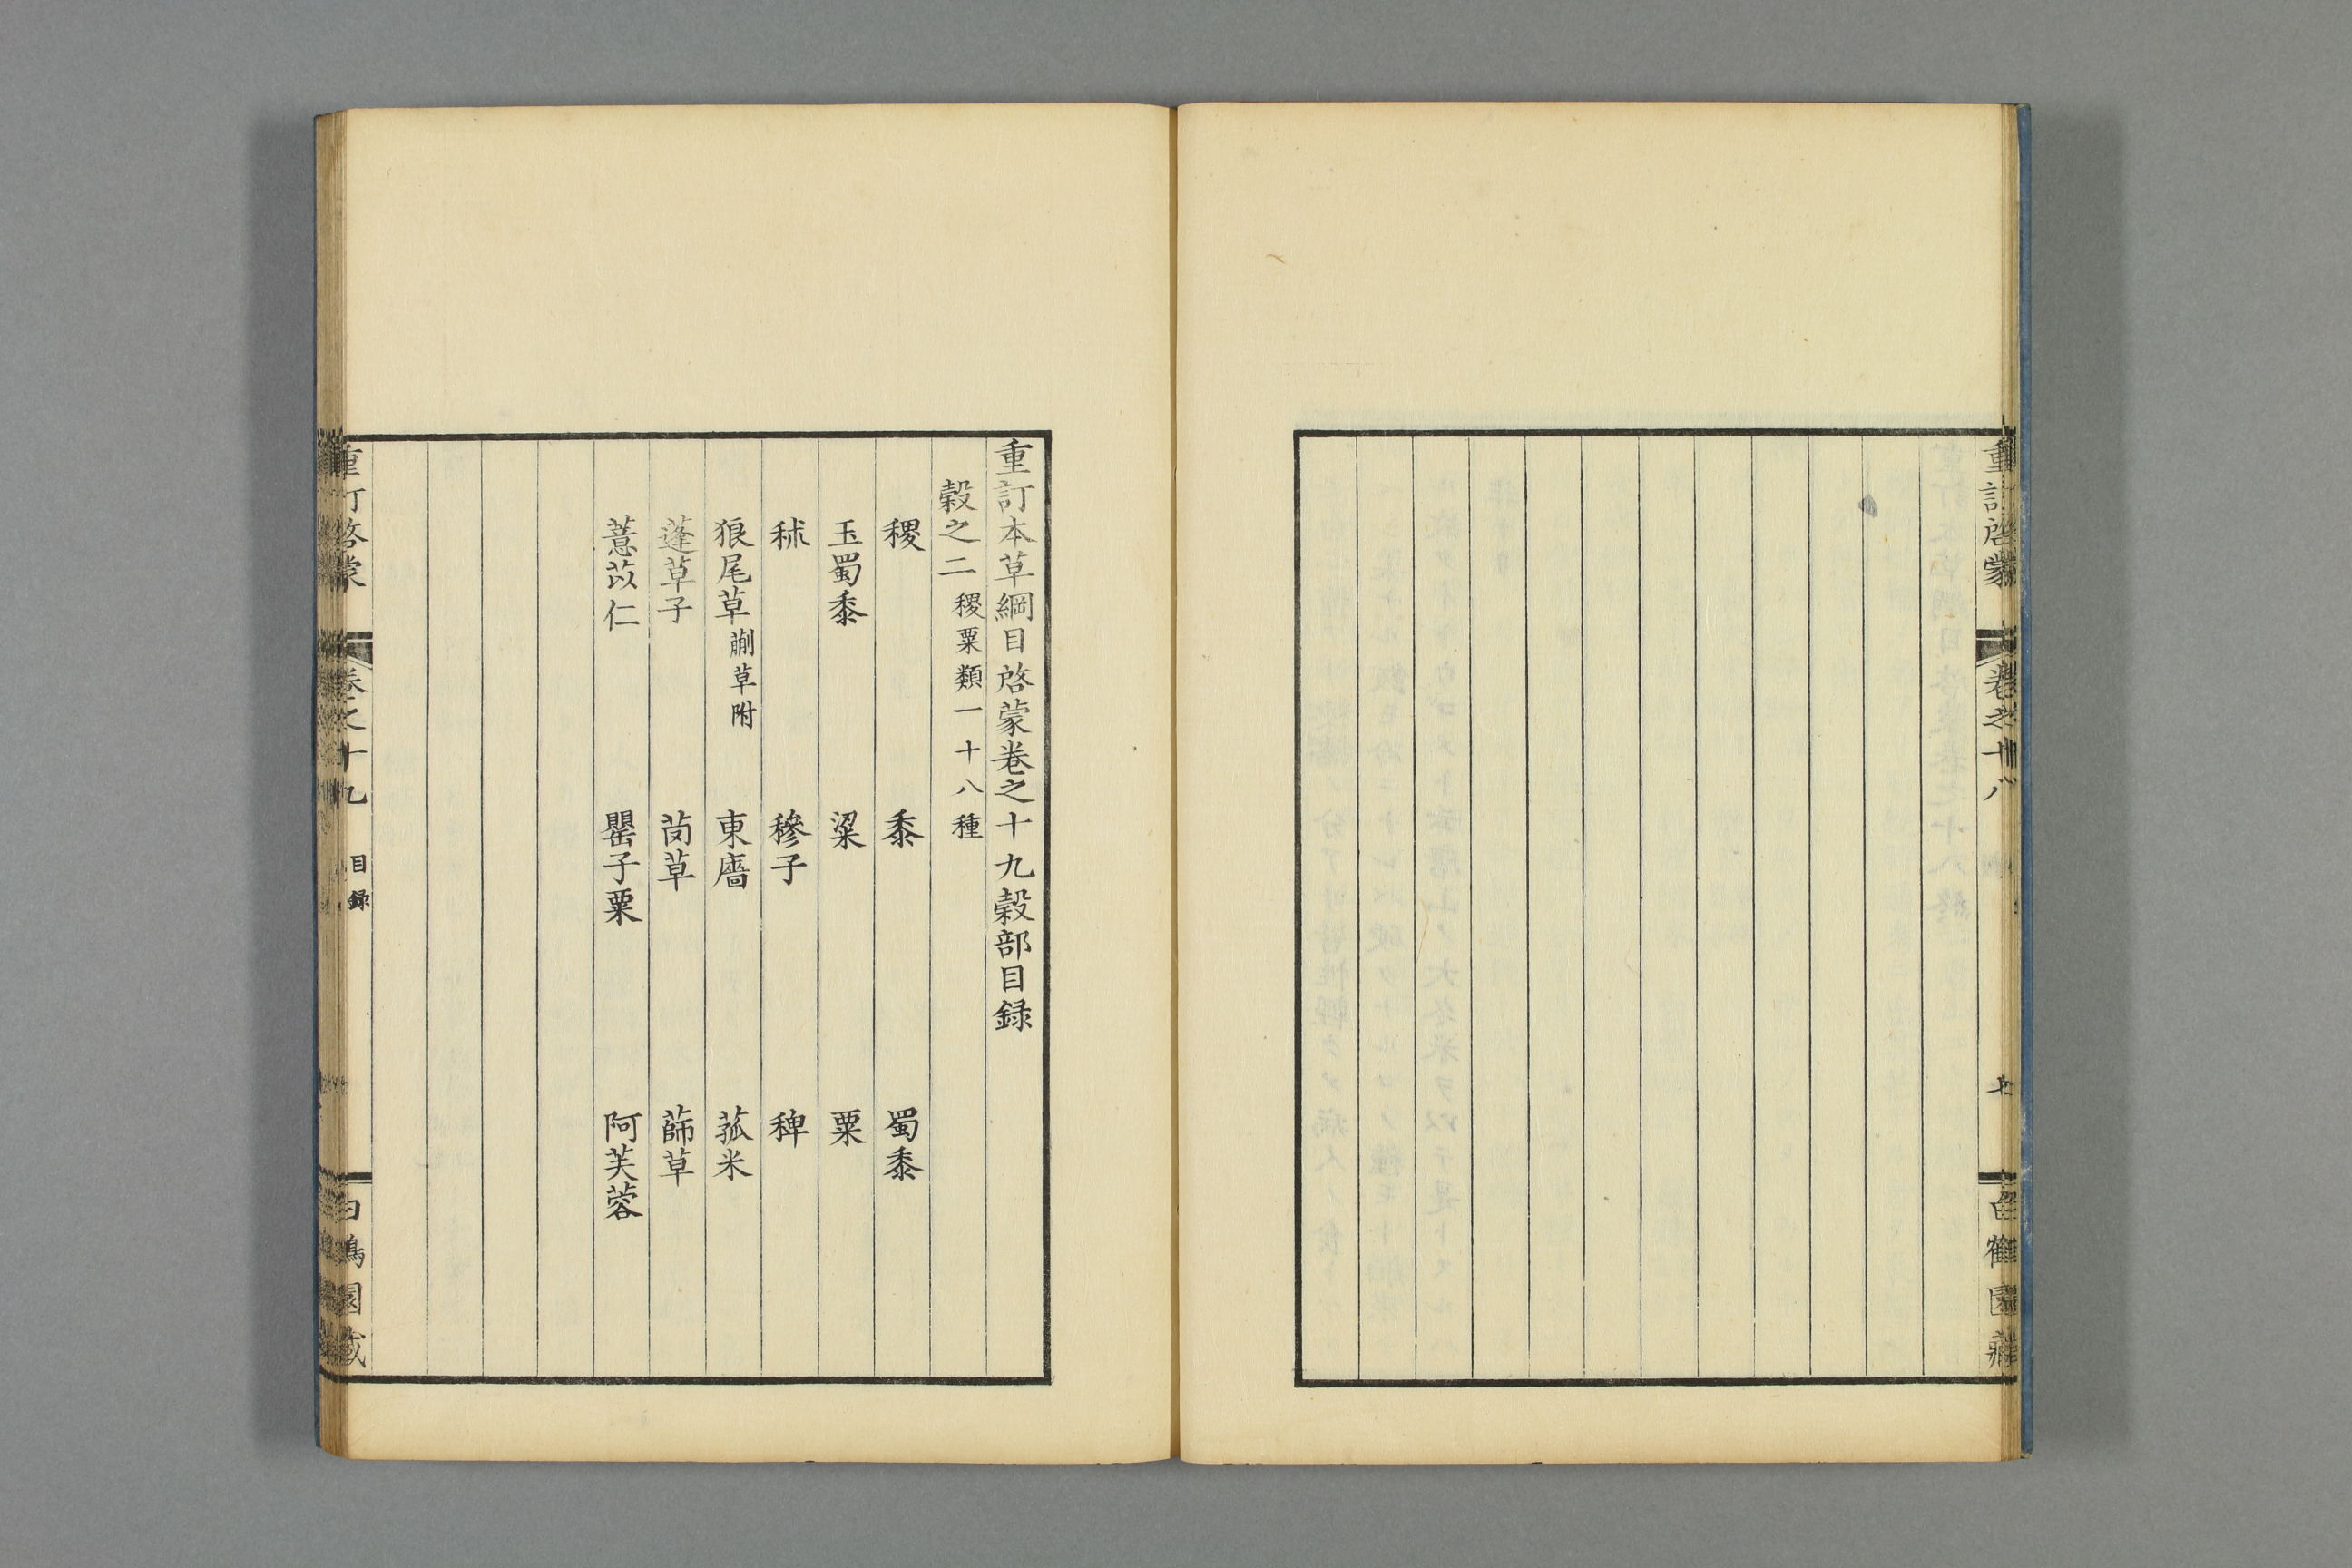 重訂啓蒙
卷之十八
七
白鶴園藏
重訂本草綱目啓蒙卷之十九穀部目録
穀之二 稷粟類一十八種
稷 黍 蜀黍
玉蜀黍 粱 粟
秫 穇子 稗
狼尾草 蒯草附 東廧 菰米
蓬草子 䒳草 蒒草
薏苡仁 罌子粟 阿芙蓉
重訂啓蒙
卷之十九
目録